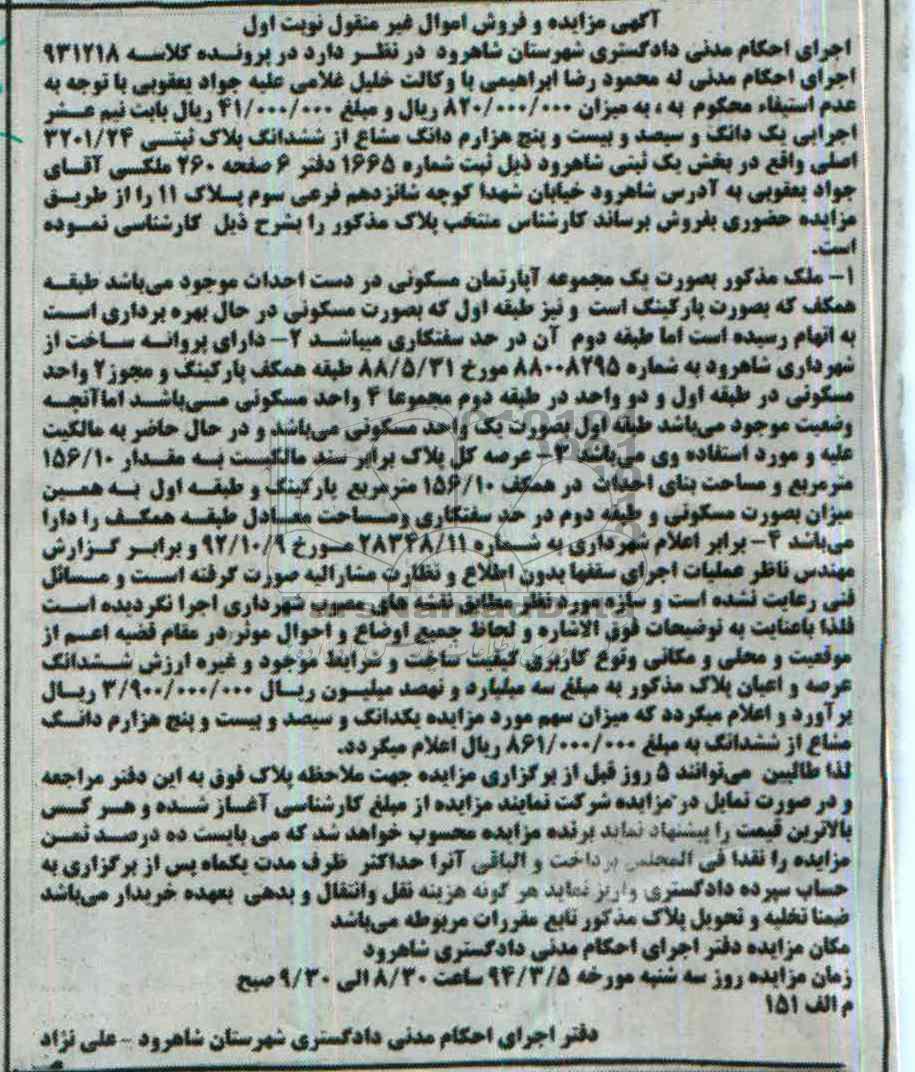 آگهی مزایده و فروش اموال غیر منقول نوبت اول
اجرای احکام مدنی دادگستری شهرستان شاهرود در نظر دارد در پرونده کلاسه ۹۳۱۲۱۸
اجرای احکام مدنی له محمود رضا ابراهیمی با وکالت خلیل غلامی علیه جواد یعقوبی با توجه به
عدم استیفاء محکوم به ، به میزان ۸۲۰/۰۰۰/۰۰۰ ریال و مبلغ ۴۱/۰۰۰/۰۰۰ ریال بابت نیم عشر
اجرایی یک دانگ و سیصد و بیست و پنج هزارم دانگ مشاع از ششدانگ پلاک ثبتی ۳۲۰۱/۲۴
اصلی واقع در بخش یک ثبتی شاهرود ذیل ثبت شماره ۱۶۶۵ دفتر ۶ صفحه ۲۶۰ ملکی آقای
جواد یعقوبی به آدرس شاهرود خیابان شهدا کوچه شانزدهم فرعی سوم پلاک ۱۱ را از طریق
مزایده حضوری بفروش برساند کارشناس منتخب پلاک مذکور را بشرح ذیل کارشناسی نموده
است.
۱- ملک مذکور بصورت یک مجموعه آپارتمان مسکونی در دست احداث موجود می‌باشد طبقه
همکف که بصورت پارکینگ است و نیز طبقه اول که بصورت مسکونی در حال بهره برداری است
به اتهام رسیده است اما طبقه دوم آن در حد سفتکاری میباشد ۲- دارای پروانه ساخت از
شهرداری شاهرود به شماره ۸۸۰۰۸۲۹۵ مورخ ۸۸/۵/۳۱ طبقه همکف پارکینگ و مجوز ۲ واحد
مسکونی در طبقه اول و دو واحد در طبقه دوم مجموعا ۴ واحد مسکونی می‌باشد اماآنچه
وضعیت موجود می‌باشد طبقه اول بصورت یک واحد مسکونی می‌باشد و در حال حاضر به مالکیت
علیه و مورد استفاده وی می‌باشد ۳- عرصه کل پلاک برابر سند مالکیت به مقدار ۱۵۶/۱۰
مترمربع و مساحت بنای احداث در همکف ۱۵۶/۱۰ مترمربع پارکینگ و طبقه اول به همین
میزان بصورت مسکونی و طبقه دوم در حد سفتکاری ومساحت معادل طبقه همکف را دارا
می‌باشد ۴- برابر اعلام شهرداری به شماره ۲۸۳۴۸/۱۱ مورخ ۹۲/۱۰/۹ و برابر گزارش
مهندس ناظر عملیات اجرای سقفها بدون اطلاع و نظارت مشارالیه صورت گرفته است و مسائل
فنی رعایت نشده است و سازه مورد نظر مطابق نقشه های مصوب شهرداری اجرا نگردیده است
فلذا باعنایت به توضیحات فوق الاشاره و لحاظ جمیع اوضاع و احوال موثر در مقام قضیه اعم از
موقعیت و محلی و مکانی ونوع کاربری کیفیت ساخت و شرایط موجود و غیره ارزش ششدانگ
عرصه و اعیان پلاک مذکور به مبلغ سه میلیارد و نهصد میلیون ریال ۳/۹۰۰/۰۰۰/۰۰۰ ریال
برآورد و اعلام میگردد که میزان سهم مورد مزایده یکدانگ و سیصد و بیست و پنج هزارم دانگ
مشاع از ششدانگ به مبلغ ۸۶۱/۰۰۰/۰۰۰ ریال اعلام میگردد.
لذا طالبین می‌توانند ۵ روز قبل از برگزاری مزایده جهت ملاحظه پلاک فوق به این دفتر مراجعه
و در صورت تمایل در مزایده شرکت نمایند مزایده از مبلغ کارشناسی آغاز شده و هر کس
بالاترین قیمت را پیشنهاد نماید برنده مزایده محسوب خواهد شد که می بایست ده درصد ثمن
مزایده را نقدا فی المجلس پرداخت و الباقی آنرا حداکثر ظرف مدت یکماه پس از برگزاری به
حساب سپرده دادگستری واریز نماید هر گونه هزینه نقل وانتقال و بدهی بعهده خریدار می‌باشد
ضمنا تخلیه و تحویل پلاک مذکور تابع مقررات مربوطه می‌باشد
مکان مزایده دفتر اجرای احکام مدنی دادگستری شاهرود
زمان مزایده روز سه شنبه مورخه ۹۴/۳/۵ ساعت ۸/۳۰ الی ۹/۳۰ صبح
م الف ۱۵۱
دفتر اجرای احکام مدنی دادگستری شهرستان شاهرود - علی نژاد